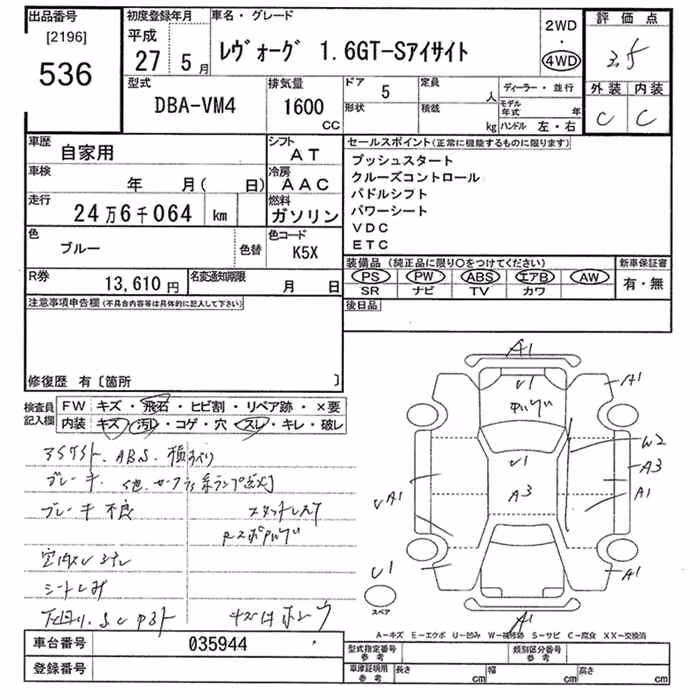 出品番号
[2196]
536
初度登録年月
平成
27 5月
車名・グレード
ﾚｳﾞｫｰｸﾞ 1.6GT-Sアイサイト
2WD
・
4WD
評価点
3.5
外装 内装
C C
型式
DBA-VM4
排気量
1600
CC
ドア 5
形状
定員 人
積載 kg
ディーラー・並行
モデル年式 年
ハンドル 左・右
車歴
自家用
シフト
AT
車検
年 月( 日)
冷房
AAC
走行
24万6千064 km
燃料
ガソリン
色
ブルー
色替
色コード
K5X
R券
13,610 円
名変通知期限
月 日
セールスポイント(正常に機能するものに限ります)
プッシュスタート
クルーズコントロール
パドルシフト
パワーシート
VDC
ETC
装備品(純正品に限り○をつけてください)
PS PW ABS エアB AW
SR ナビ TV カワ
新車保証書
有・無
後日品
注意事項申告欄(不具合内容等は具体的に記入して下さい)
修復歴 有〔箇所 〕
検査員
記入欄
FW キズ・飛石・ヒビ割・リペア跡・×要
内装 キズ・汚れ・コゲ・穴・スレ・キレ・破レ
ABS
ブレーキ
ブレーキ不良
A1
U1
A1
W2
A3
A1
U1
A3
A1
U1
A1
A1
スペア
A-キズ E-エクボ U-凹み W-補修跡 S-サビ C-腐食 XX-交換済
車台番号
035944
登録番号
型式指定番号
参考
類別区分番号
参考
車庫証明用
参考
長さ cm
幅 cm
高さ cm